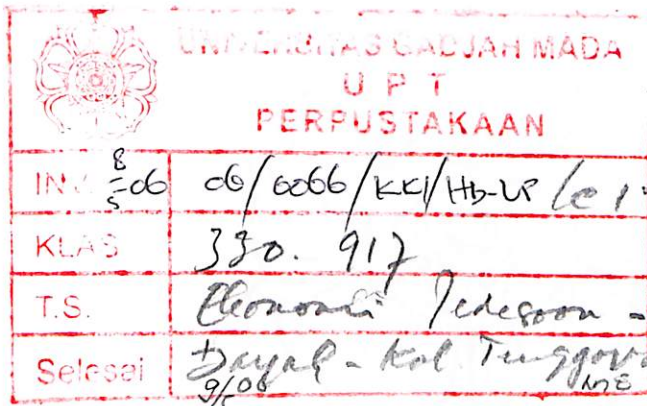 UNIVERSITAS GADJAH MADA
U P T
PERPUSTAKAAN
INV. 8/5-06 06/6066/KKI/Hb-UP/c1
KLAS 330.917
T.S. Ekonomi Pedesaan -
Selesai Dayak - Kal. Tenggara
9/06